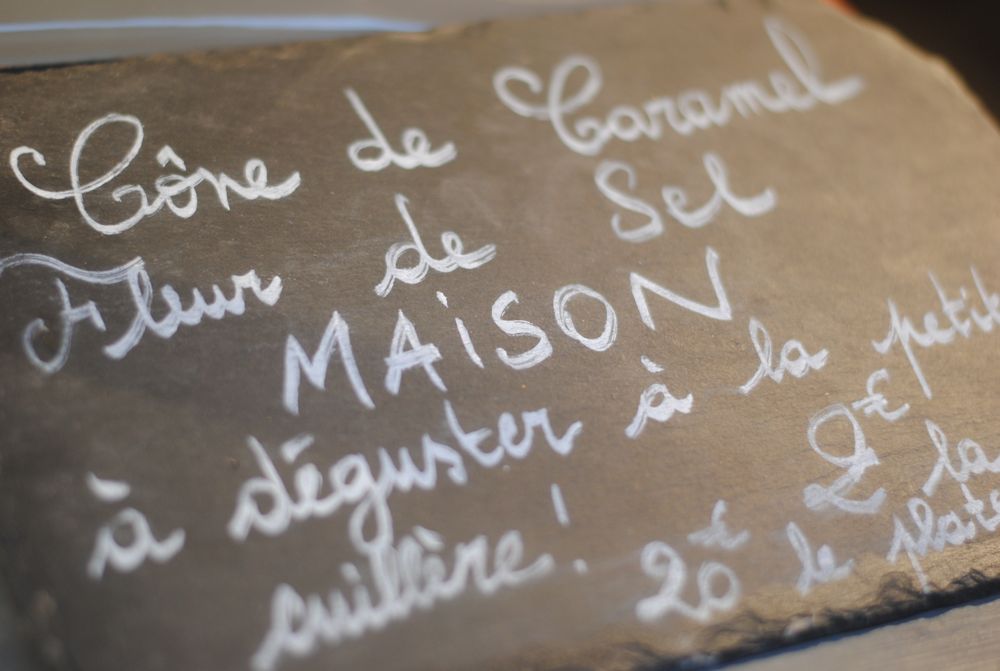 Cône de Caramel
Fleur de Sel
MAiSON
à déguster à la petit
cuillère ! 2€ la
20€ le plate